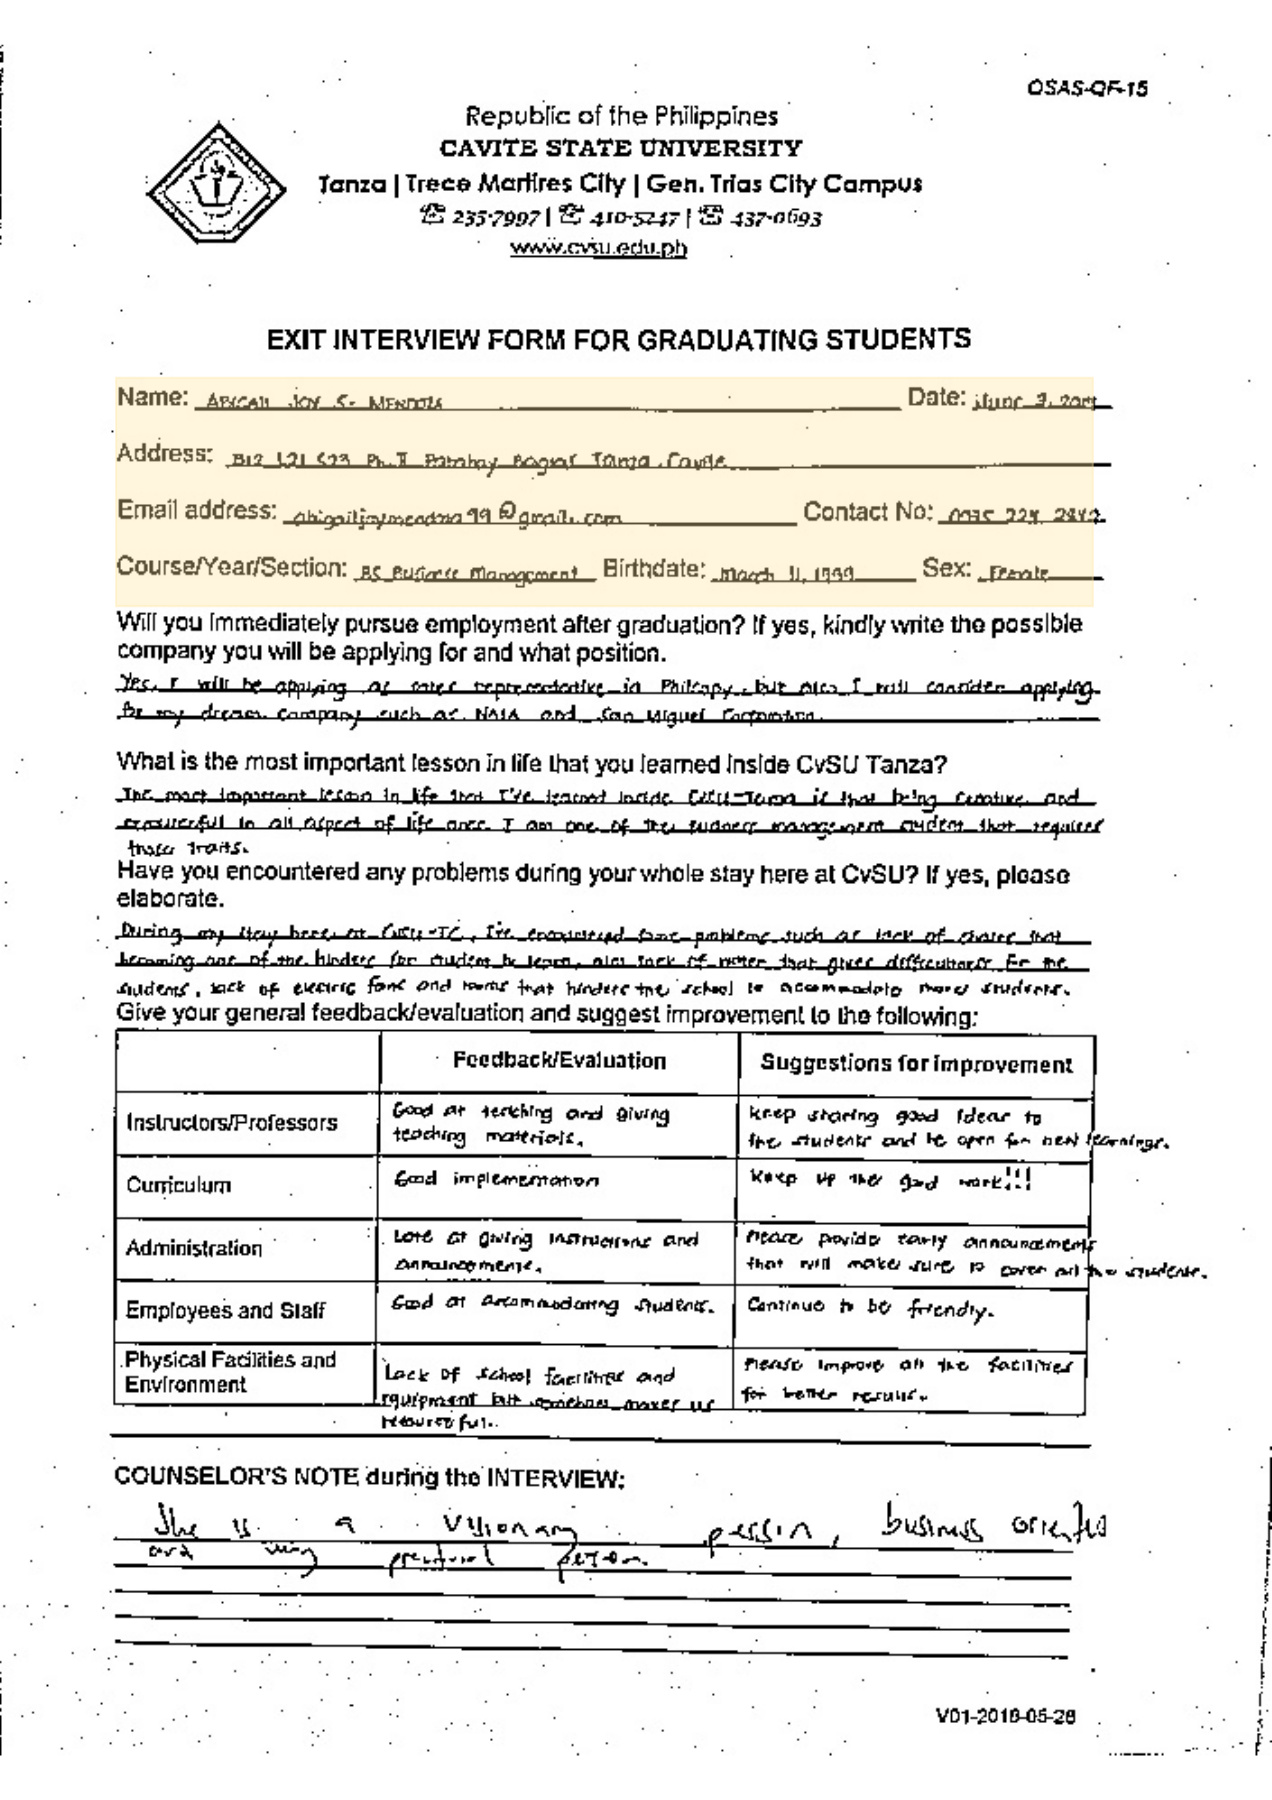 OSAS-QF-15
Republic of the Philippines
CAVITE STATE UNIVERSITY
Tanza | Trece Martires City | Gen. Trias City Campus
☎ 235-7997 | ☎ 410-5247 | ☎ 437-0693
www.cvsu.edu.ph
EXIT INTERVIEW FORM FOR GRADUATING STUDENTS
Name: ABIGAIL JOY S. MENDOZA Date: June 3,
Address: Ph. II Tanza, Cavite
Email address: @gmail.com Contact No:
Course/Year/Section: BS Business Management Birthdate: March 11, 1999 Sex: Female
Will you immediately pursue employment after graduation? If yes, kindly write the possible
company you will be applying for and what position.
Yes, I will be applying as sales representative in Philcopy, but also I will consider applying
for my dream company such as NAIA and San Miguel Corporation.
What is the most important lesson in life that you learned inside CvSU Tanza?
The most important lesson in life that I've learned inside CvSU-Tanza is that being creative and
resourceful in all aspect of life since I am one of the business management student that requires
those traits.
Have you encountered any problems during your whole stay here at CvSU? If yes, please
elaborate.
During my stay here at CvSU-TC, I've encountered some problems such as lack of chairs that
becoming one of the hinders for student to learn, also lack of water that gives for the
students, lack of electric fans and rooms that hinders the school to accommodate more students.
Give your general feedback/evaluation and suggest improvement to the following:
Feedback/Evaluation Suggestions for Improvement
Instructors/Professors Good at teaching and giving teaching materials. Keep sharing good ideas to the students and be open for new learnings.
Curriculum Good implementation Keep up the good work!!!
Administration Late at giving instructions and announcements. Please provide early announcements that will make sure to cover all the students.
Employees and Staff Good at accommodating students. Continue to be friendly.
Physical Facilities and Environment Lack of school facilities and equipment but somehow makes us resourceful. Please improve all the facilities for better results.
COUNSELOR'S NOTE during the INTERVIEW:
She is a visionary person, business oriented
and very practical person.
V01-2018-05-28